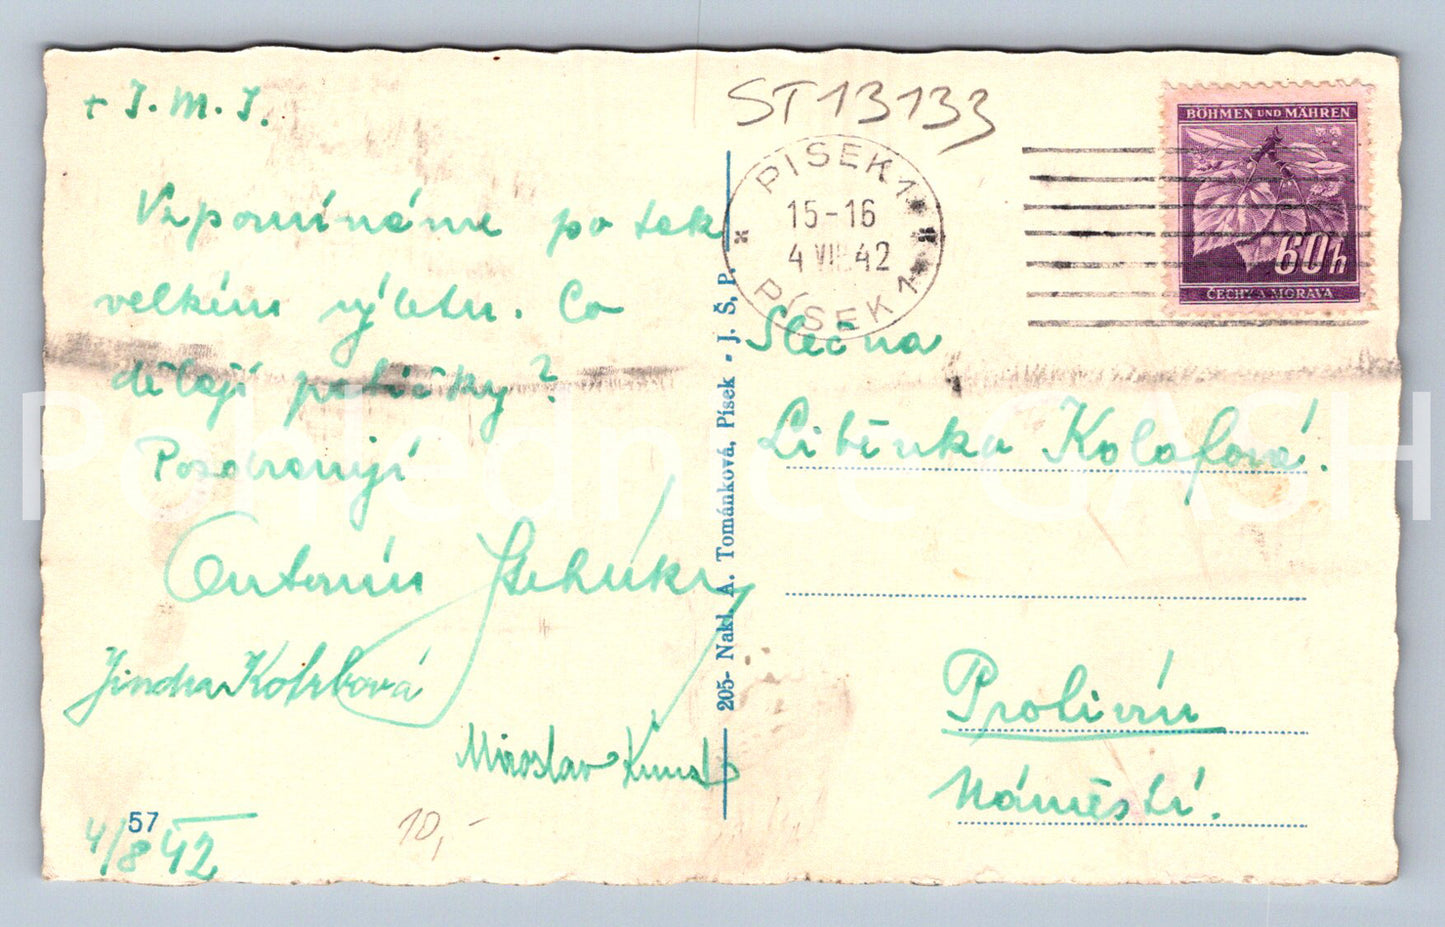 + J. M. J.
Vzpomínáme po tak
velkém výletu. Co
dělají patičky?
Pozdravují
Antonín
Jindra Kolrbová
Miroslav Kunst
57
4/8 42
10,-
ST13133
PÍSEK 1
15-16
4 VIII 42
PÍSEK 1
BÖHMEN UND MÄHREN
60h
ČECHY A MORAVA
205- Nakl. A. Tománková, Písek - J. Š. P.
Slečna
Liběnka Kolafová.
Protivín
Náměstí.
Pohlednice GASH